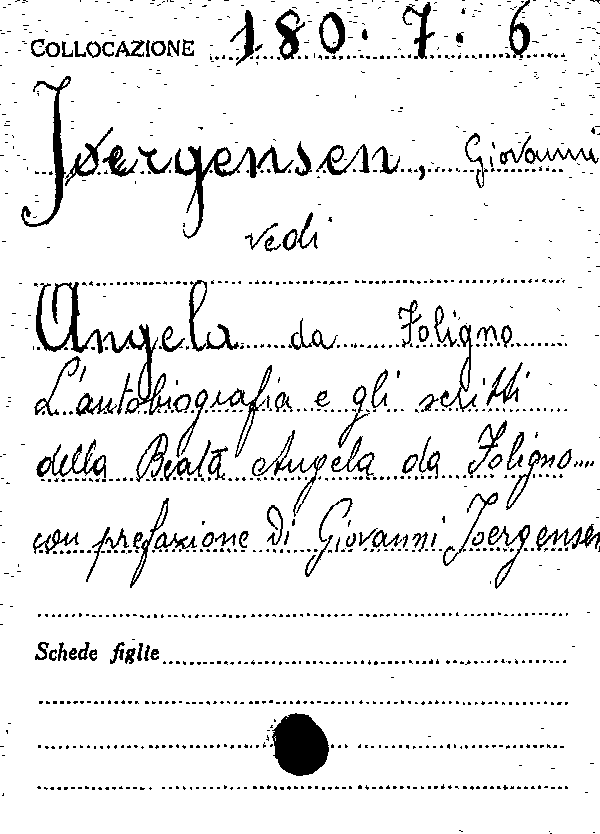 COLLOCAZIONE 180. 7. 6
Joergensen, Giovanni
vedi
Angela da Foligno
L'autobiografia e gli scritti
della Beata Angela da Foligno....
con prefazione di Giovanni Joergensen
Schede figlie